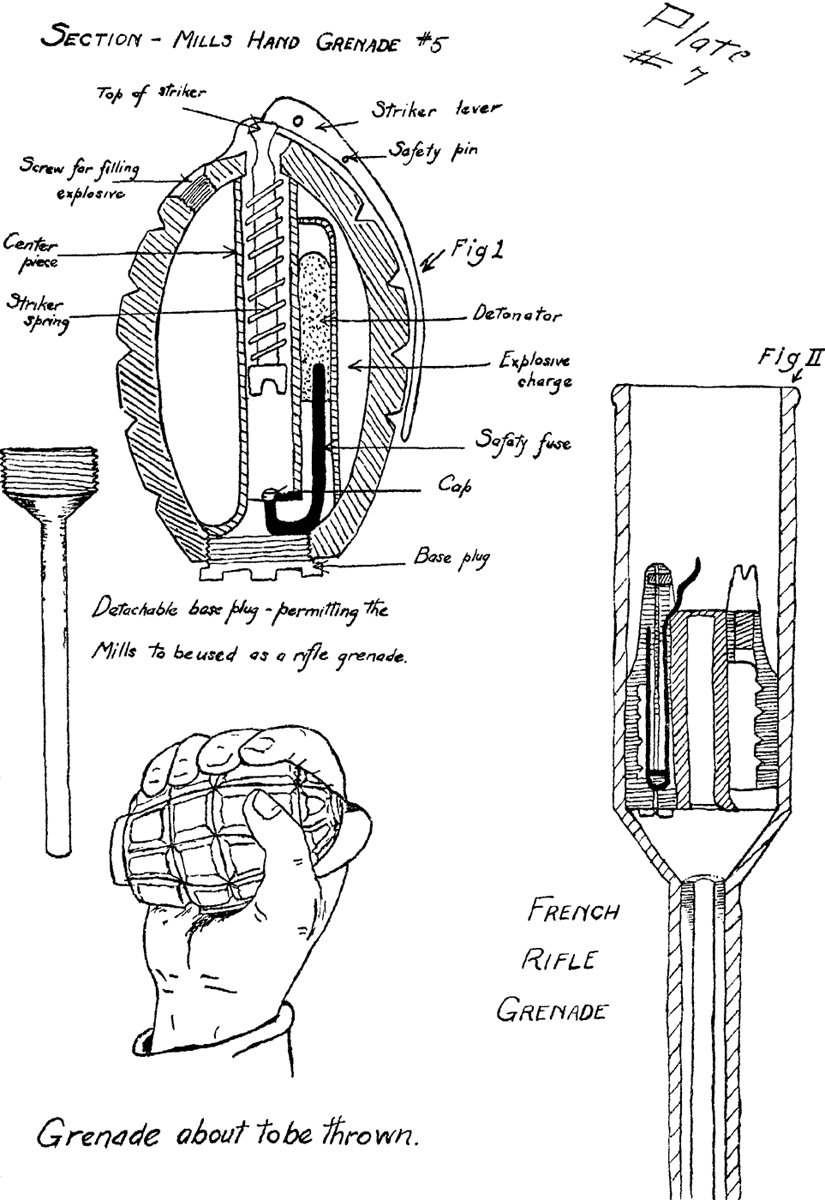 SECTION - MILLS HAND GRENADE #5
Plate
# 7
Top of striker
Striker lever
Safety pin
Screw for filling
explosive
Center
piece
Fig 1
Striker
spring
Detonator
Explosive
charge
Fig II
Safety fuse
Cap
Base plug
Detachable base plug - permitting the
Mills to be used as a rifle grenade.
FRENCH
RIFLE
GRENADE
Grenade about to be thrown.